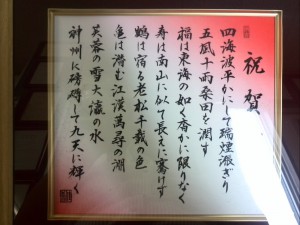 祝賀
四海波平かにして瑞煙漲ぎり
五風十雨桑田を潤す
福は東海の如く杳かに限りなく
寿は南山に似て長えに騫けず
鶴は宿る老松千載の色
亀は潜む江漢萬尋の淵
芙蓉の雪大瀛の水
神州に磅礴して九天に輝く